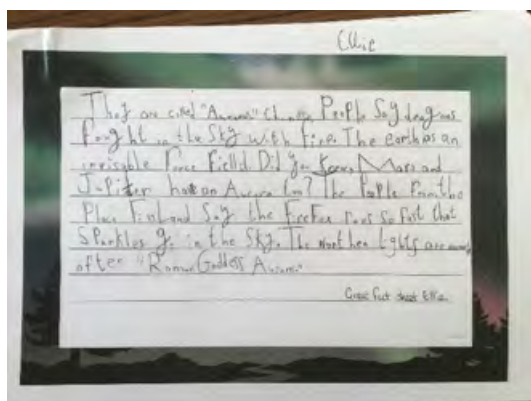 Ellie
They are called "Auroras" Chinese People Say dragons
fought in the Sky with fire. The earth has an
invisable Force Field. Did you Know Mars and
Jupiter have an Aurora too? The People from the
Place Finland Say the FireFox runs so fast that
Sparkles go in the Sky. The northen Lights are
after "Roman Goddess Aurora"
Great fact sheet Ellie